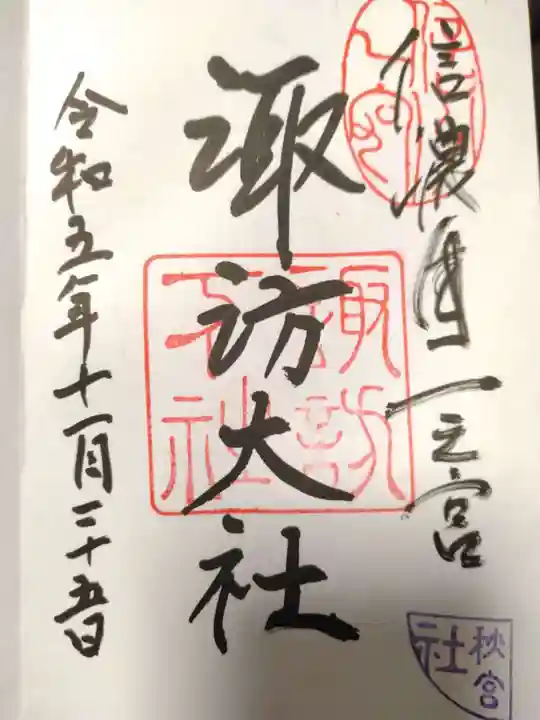 信濃國一之宮
諏訪大社
令和五年十一月二十五日
諏訪
下社
秋宮
社